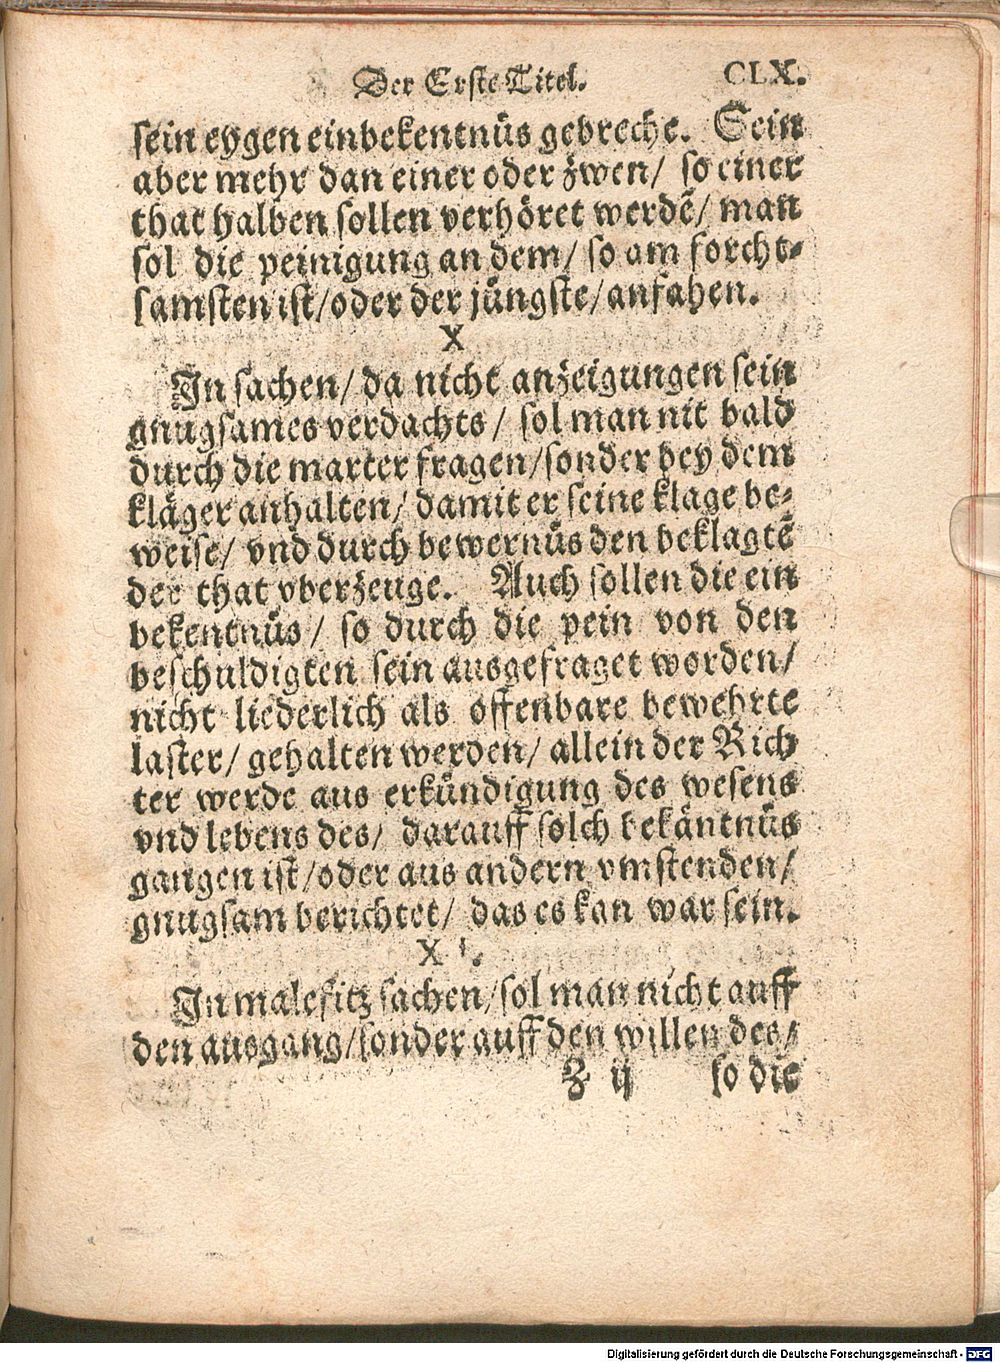 Der Erste Titel. CLX.
sein eygen einbekentnüs gebreche. Sein
aber mehr dan einer oder zwen/ so einer
that halben sollen verhöret werdē/ man
sol die peinigung an dem/ so am forcht⸗
samsten ist/ oder der jüngste/ anfahen.
X
In sachen/ da nicht anzeigungen sein
gnugsames verdachts/ sol man nit bald
durch die marter fragen/ sonder bey dem
kläger anhalten/ damit er seine klage be⸗
weise/ vnd durch bewernüs den beklagtē
der that vberzeuge. Auch sollen die ein
bekentnüs/ so durch die pein von den
beschuldigten sein ausgefraget worden/
nicht liederlich als offenbare bewehrte
laster/ gehalten werden/ allein der Rich
ter werde aus erkündigung des wesens
vnd lebens des/ darauff solch bekäntnüs
gangen ist/ oder aus andern vmstenden/
gnugsam berichtet/ das es kan war sein.
XI.
In malefitz sachen/ sol man nicht auff
den ausgang/ sonder auff den willen des/
Z ij so die
Digitalisierung gefördert durch die Deutsche Forschungsgemeinschaft - DFG